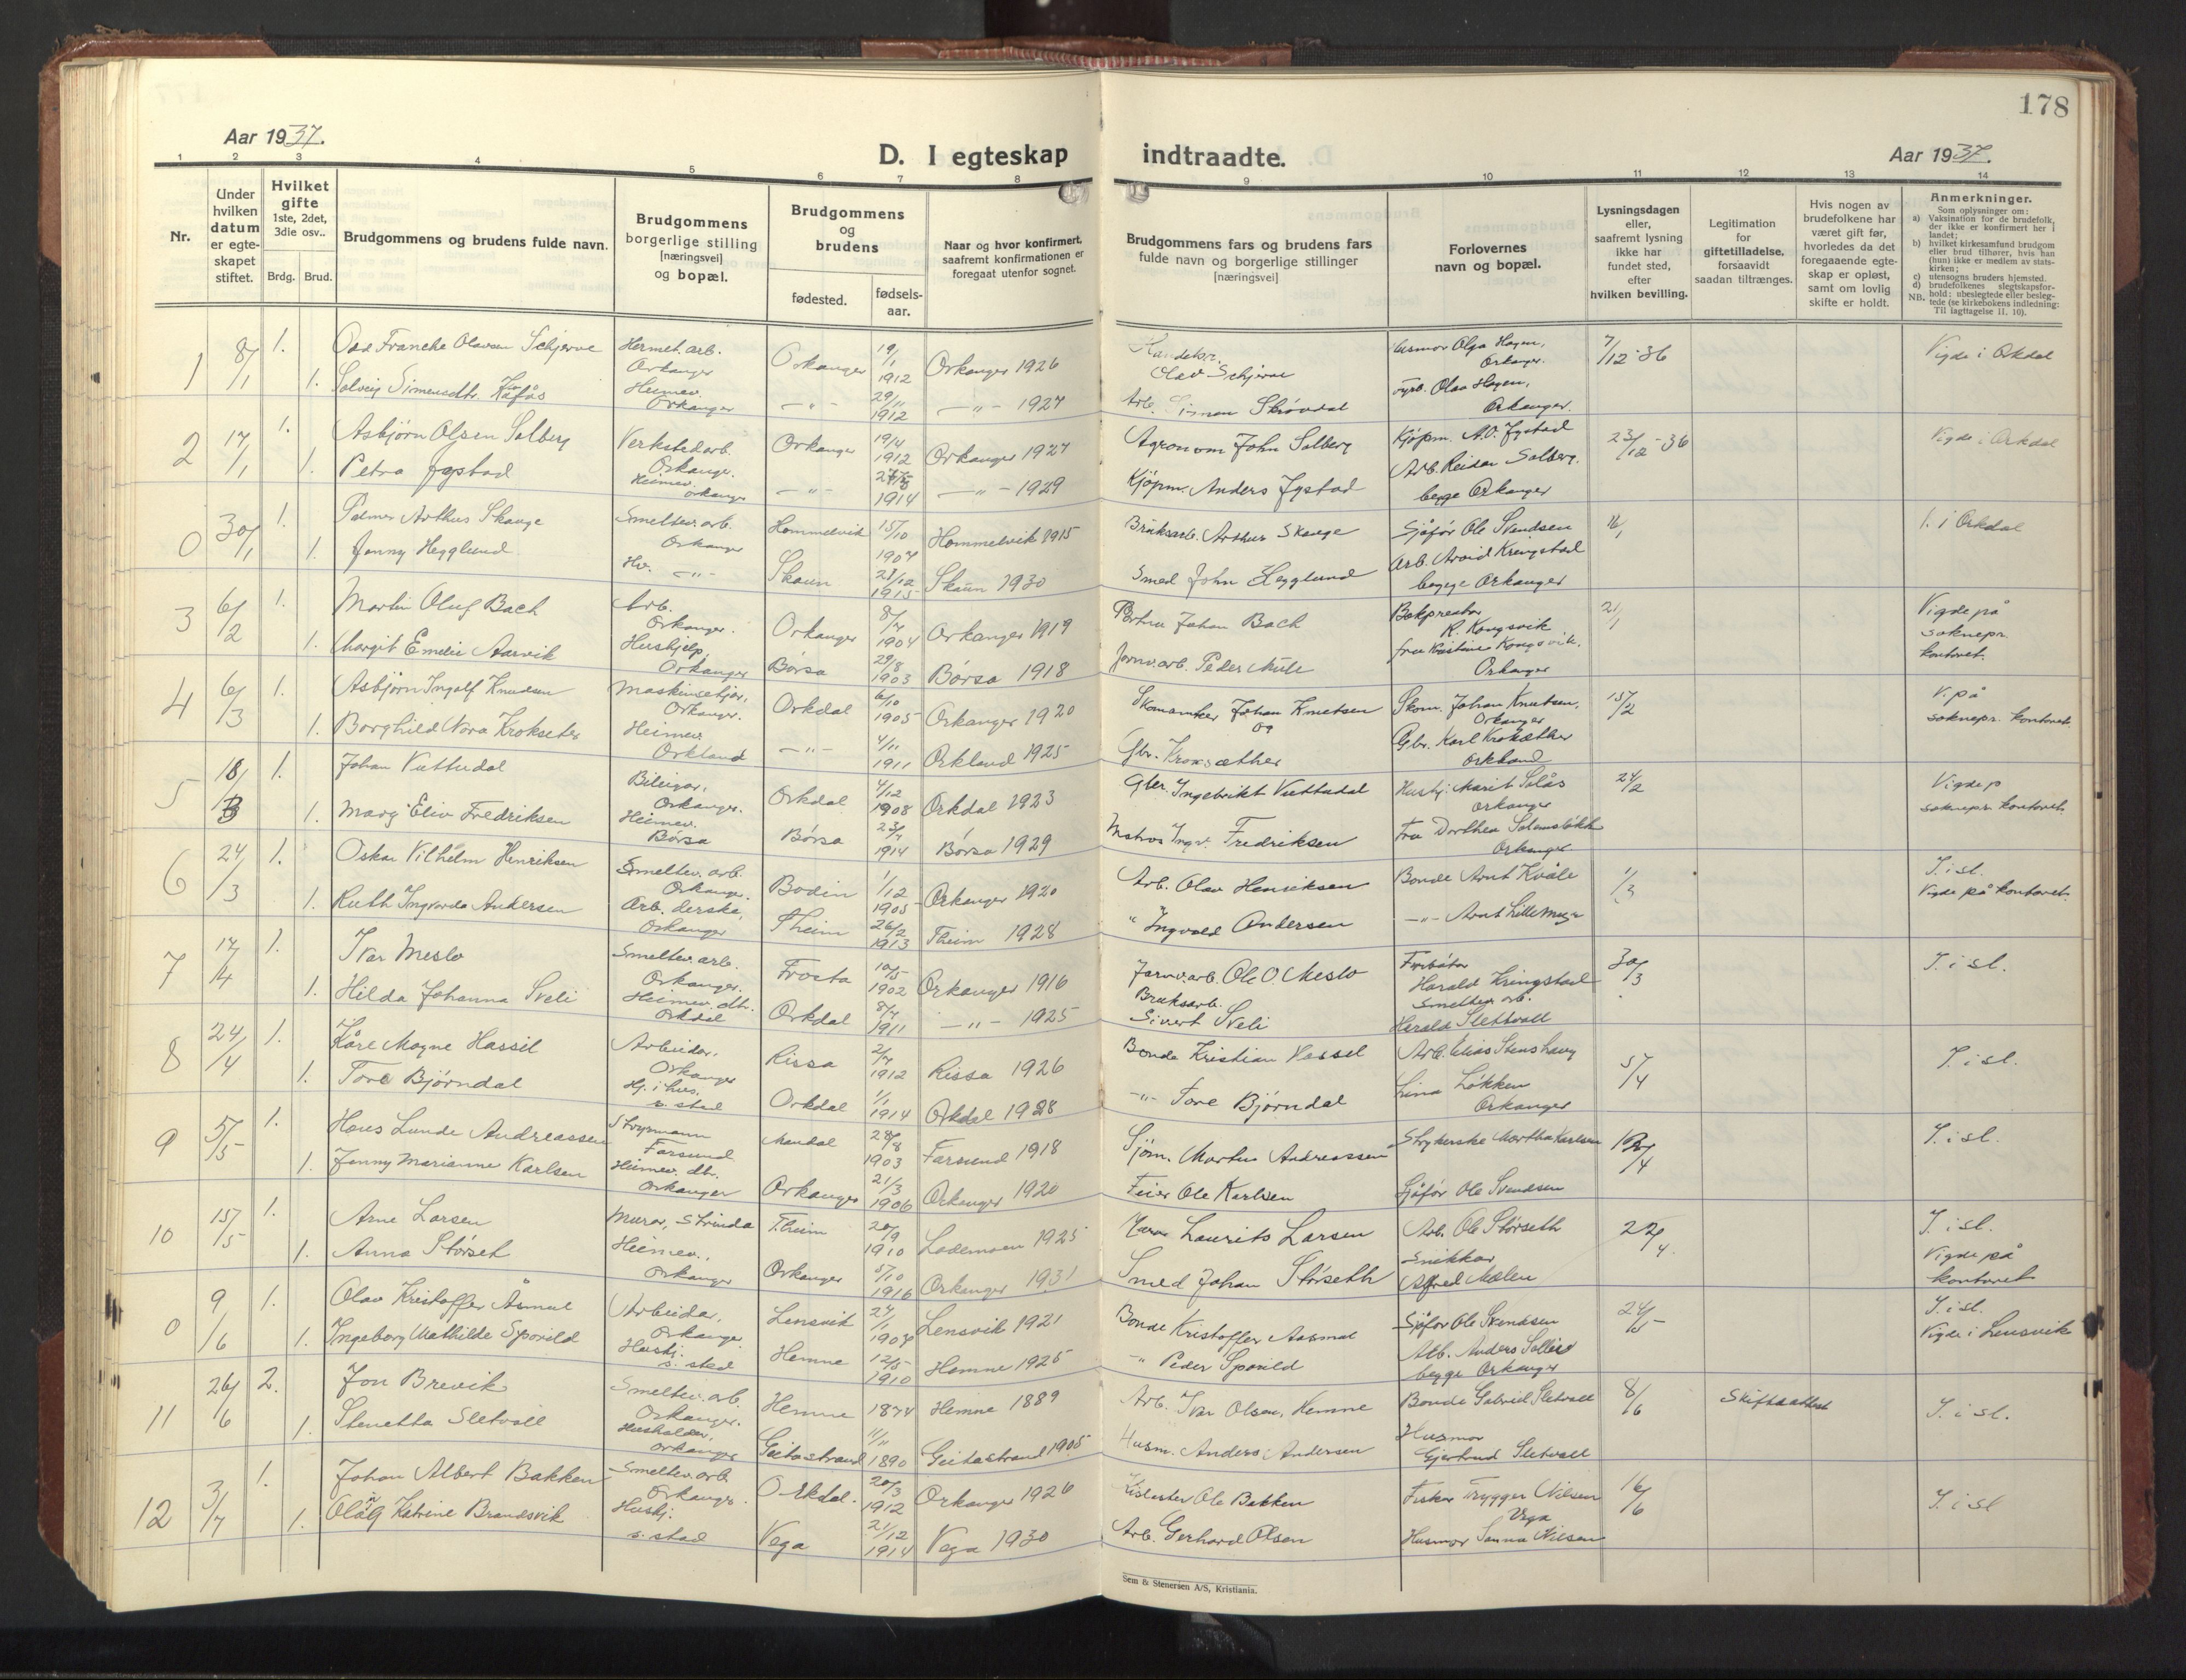 178
Aar 1937.
D. I egteskap indtraadte.
Aar 1937.
1 2 3 4 5 6 7 8 9 10 11 12 13 14
Nr.
Under hvilken datum er egte- skapet stiftet.
Hvilket gifte 1ste, 2det, 3die osv..
Brdg. Brud.
Brudgommens og brudens fulde navn.
Brudgommens borgerlige stilling [næringsvei] og bopæl.
Brudgommens og brudens
fødested.
fødsels- aar.
Naar og hvor konfirmert, saafremt konfirmationen er foregaat utenfor sognet.
Brudgommens fars og brudens fars fulde navn og borgerlige stillinger [næringsvei]
Forlovernes navn og bopæl.
Lysningsdagen eller, saafremt lysning ikke har fundet sted, efter hvilken bevilling.
Legitimation for giftetilladelse, forsaavidt saadan tiltrænges.
Hvis nogen av brudefolkene har været gift før, hvorledes da det foregaaende egte- skap er opløst, samt om lovlig skifte er holdt.
Anmerkninger.
Som oplysninger om:
a) Vaksination for de brudefolk, der ikke er konfirmert her i landet;
b) hvilket kirkesamfund brudgom eller brud tilhører, hvis han (hun) ikke er medlem av stats- kirken;
c) utensogns bruders hjemsted.
d) brudefolkenes slegtskapsfor- hold: ubeslegtede eller besleg- tede (se kirkebokens indledning:
NB. Til iagttagelse II. 10).
1 8/1 1. Odd Francke Olavsen Schjerve Hermet. arb. Orkanger Orkanger 19/1 1912 Orkanger 1926 Olav Schjerve Husmor Olga Hagen, Orkanger. 7/12-36 Vigde i Orkdal
1. Solveig Simensdtr. Heimev. Orkanger -"- 29/11 1912 -"- 1927 Arb. Simon Skrøvdal Olav Hagen, Orkanger.
2 17/1 1. Asbjørn Olsen Solberg Verkstedarb. Orkanger. Orkanger 19/4 1912 Orkanger 1927 Agronom John Solberg Kjøpm. A.O. Jystad 23/12-36 Vigde i Orkdal
1. Petra Jystad Heimev. Orkanger -"- 1914 -"- 1929 Kjøpm. Anders Jystad Arb. Reidar Solberg. begge Orkanger
0 30/1 1. Palmer Arthur Skauge Smeltev. arb. Orkanger Hommelvik 15/10 Hommelvik 1915 Bruksarb. Arthur Skauge Sjåfør Ole Svendsen 16/1 V. i Orkdal
1. Jenny Hegglund Hv. -"- Skaun 28/12 1915 Skaun 1930 Smed John Hegglund Arb. Arvid Kringstad begge Orkanger
3 6/2 1. Martin Oluf Bach Arb. Orkanger. Orkanger 1904 Orkanger 1919 Johan Bach R. Kongsvik 21/1 Vigde på soknepr. kontoret.
1. Margit Emelie Aarvik Hushjelp, Orkanger Børsa 29/8 1903 Børsa 1918 Jernv.arb. Peder fru Kristine Kongsvik. Orkanger
4 6/3 1. Asbjørn Ingolf Knudsen Orkanger. Orkdal 6/10 1905 Orkanger 1920 Skomaker Johan Knutsen og Skom. Johan Knutsen, Orkanger 15/2 V. på soknepr. kontoret.
1. Borghild Nora Krokseter Heimev. Orkland -"- 4/11 1911 Orkland 1925 Gbr. Kroksæther Gbr. Karl Kroksæther Orkland
5 18/3 1. Johan Vuttudal Bileigar, Orkanger. Orkdal 4/12 1908 Orkdal 1923 Gbr. Ingebrikt Vuttudal Hushj. Marit Solås Orkanger 24/2 Vigde p soknepr. kontoret.
1. Marg. Eliv Fredriksen Heimev. Børsa Børsa 1914 Børsa 1929 Matros Ingv. Fredriksen Fru Dorthea Orkanger
6 24/3 1. Oskar Vilhelm Henriksen Smeltev. arb. Orkanger. Bodin 1/12 1905 Orkanger 1920 Arb. Olav Henriksen Bonde Arnt Kvåle 1/3 I. i sl. Vigde på kontoret.
1. Ruth Ingvarda Andersen Arb. derske, Orkanger Theim 26/2 1913 Theim 1928 " Ingvald Andersen -"- Arnt
7 17/4 1. Ivar Meslo Smeltev. arb. Orkanger. Frosta 10/5 1902 Orkanger 1916 Jarnv.arb. Ole O. Meslo Fyrbøter Harald Kringstad 30/3 I. i sl.
1. Hilda Johanna Sveli Heimev. dtr. Orkdal Orkdal 1911 -"- 1925 Bruksarb. Sivert Sveli Smeltev. arb. Harald Slettvoll
8 24/4 1. Kåre Magne Hassel Arbeidar, Orkanger Rissa 1912 Rissa 1926 Bonde Kristian Hassel Arb. Elias Stenshaug 5/4 I. i sl.
1. Tove Bjørndal Hj. i hus. s. stad Orkdal 1/1 1914 Orkdal 1928 -"- Tore Bjørndal Lina Løkken Orkanger
9 5/5 1. Hans Lunde Andreassen Styrmann Farsund Mandal 28/8 1903 Farsund 1918 Sjøm. Martin Andreassen Strykerske Martha Karlsen I. i sl.
1. Jenny Marianne Karlsen Heimev. dtr. Orkanger Orkanger 21/3 1906 Orkanger 1920 Feier Ole Karlsen Sjåfør Ole Svendsen
10 15/5 1. Arne Larsen Murar, Strinda Theim 20/9 1910 Lademoen 1925 Laurits Larsen Arb. Ole Størseth 22/4. I. i sl. Vigde på kontoret
1. Anna Størset Heimev., Orkanger Orkanger 5/10 1916 Orkanger 1931 Smed Johan Størseth Snikkar Alfred Mælen
0 9/6 1. Olav Kristoffer Åsmul Arbeidar, Orkanger Lensvik 1907 Lensvik 1921 Bonde Kristoffer Aasmul Sjåfør Ole Svendsen 24/5 I. i sl. Vigde i Lensvik
1. Ingeborg Mathilde Spovild Hushj. s. stad Hemne 12/5 1910 Hemne 1925 " Peder Spovild Arb. Anders Sollie begge Orkanger
11 26/6 2. Jon Brevik Smeltev. arb. Orkanger. Hemne 1874 Hemne 1889 Arb. Ivar Olsen, Hemne Bonde Gabriel Sletvoll 8/6 Skifteattest I. i sl.
1. Stenetta Sletvoll Husholder, Orkanger Geitastrand 11/11 1890 Geitastrand 1905 Husm. Anders Andersen Husmor Gjertrud Sletvoll
12 3/7 1. Johan Albert Bakken Smeltev. arb Orkanger. Orkdal. 20/3 1912 Orkanger 1926 Ole Bakken Fiskar Trygger Nilsen Vega 16/6 I. i sl
1. Olaug Katrine Brandsvik Hushj. s. stad Vega 21/12 1914 Vega 1930 Arb. Gerhard Olsen Husmor Sanna Nilsen
Sem & Stenersen A/S, Kristiania.